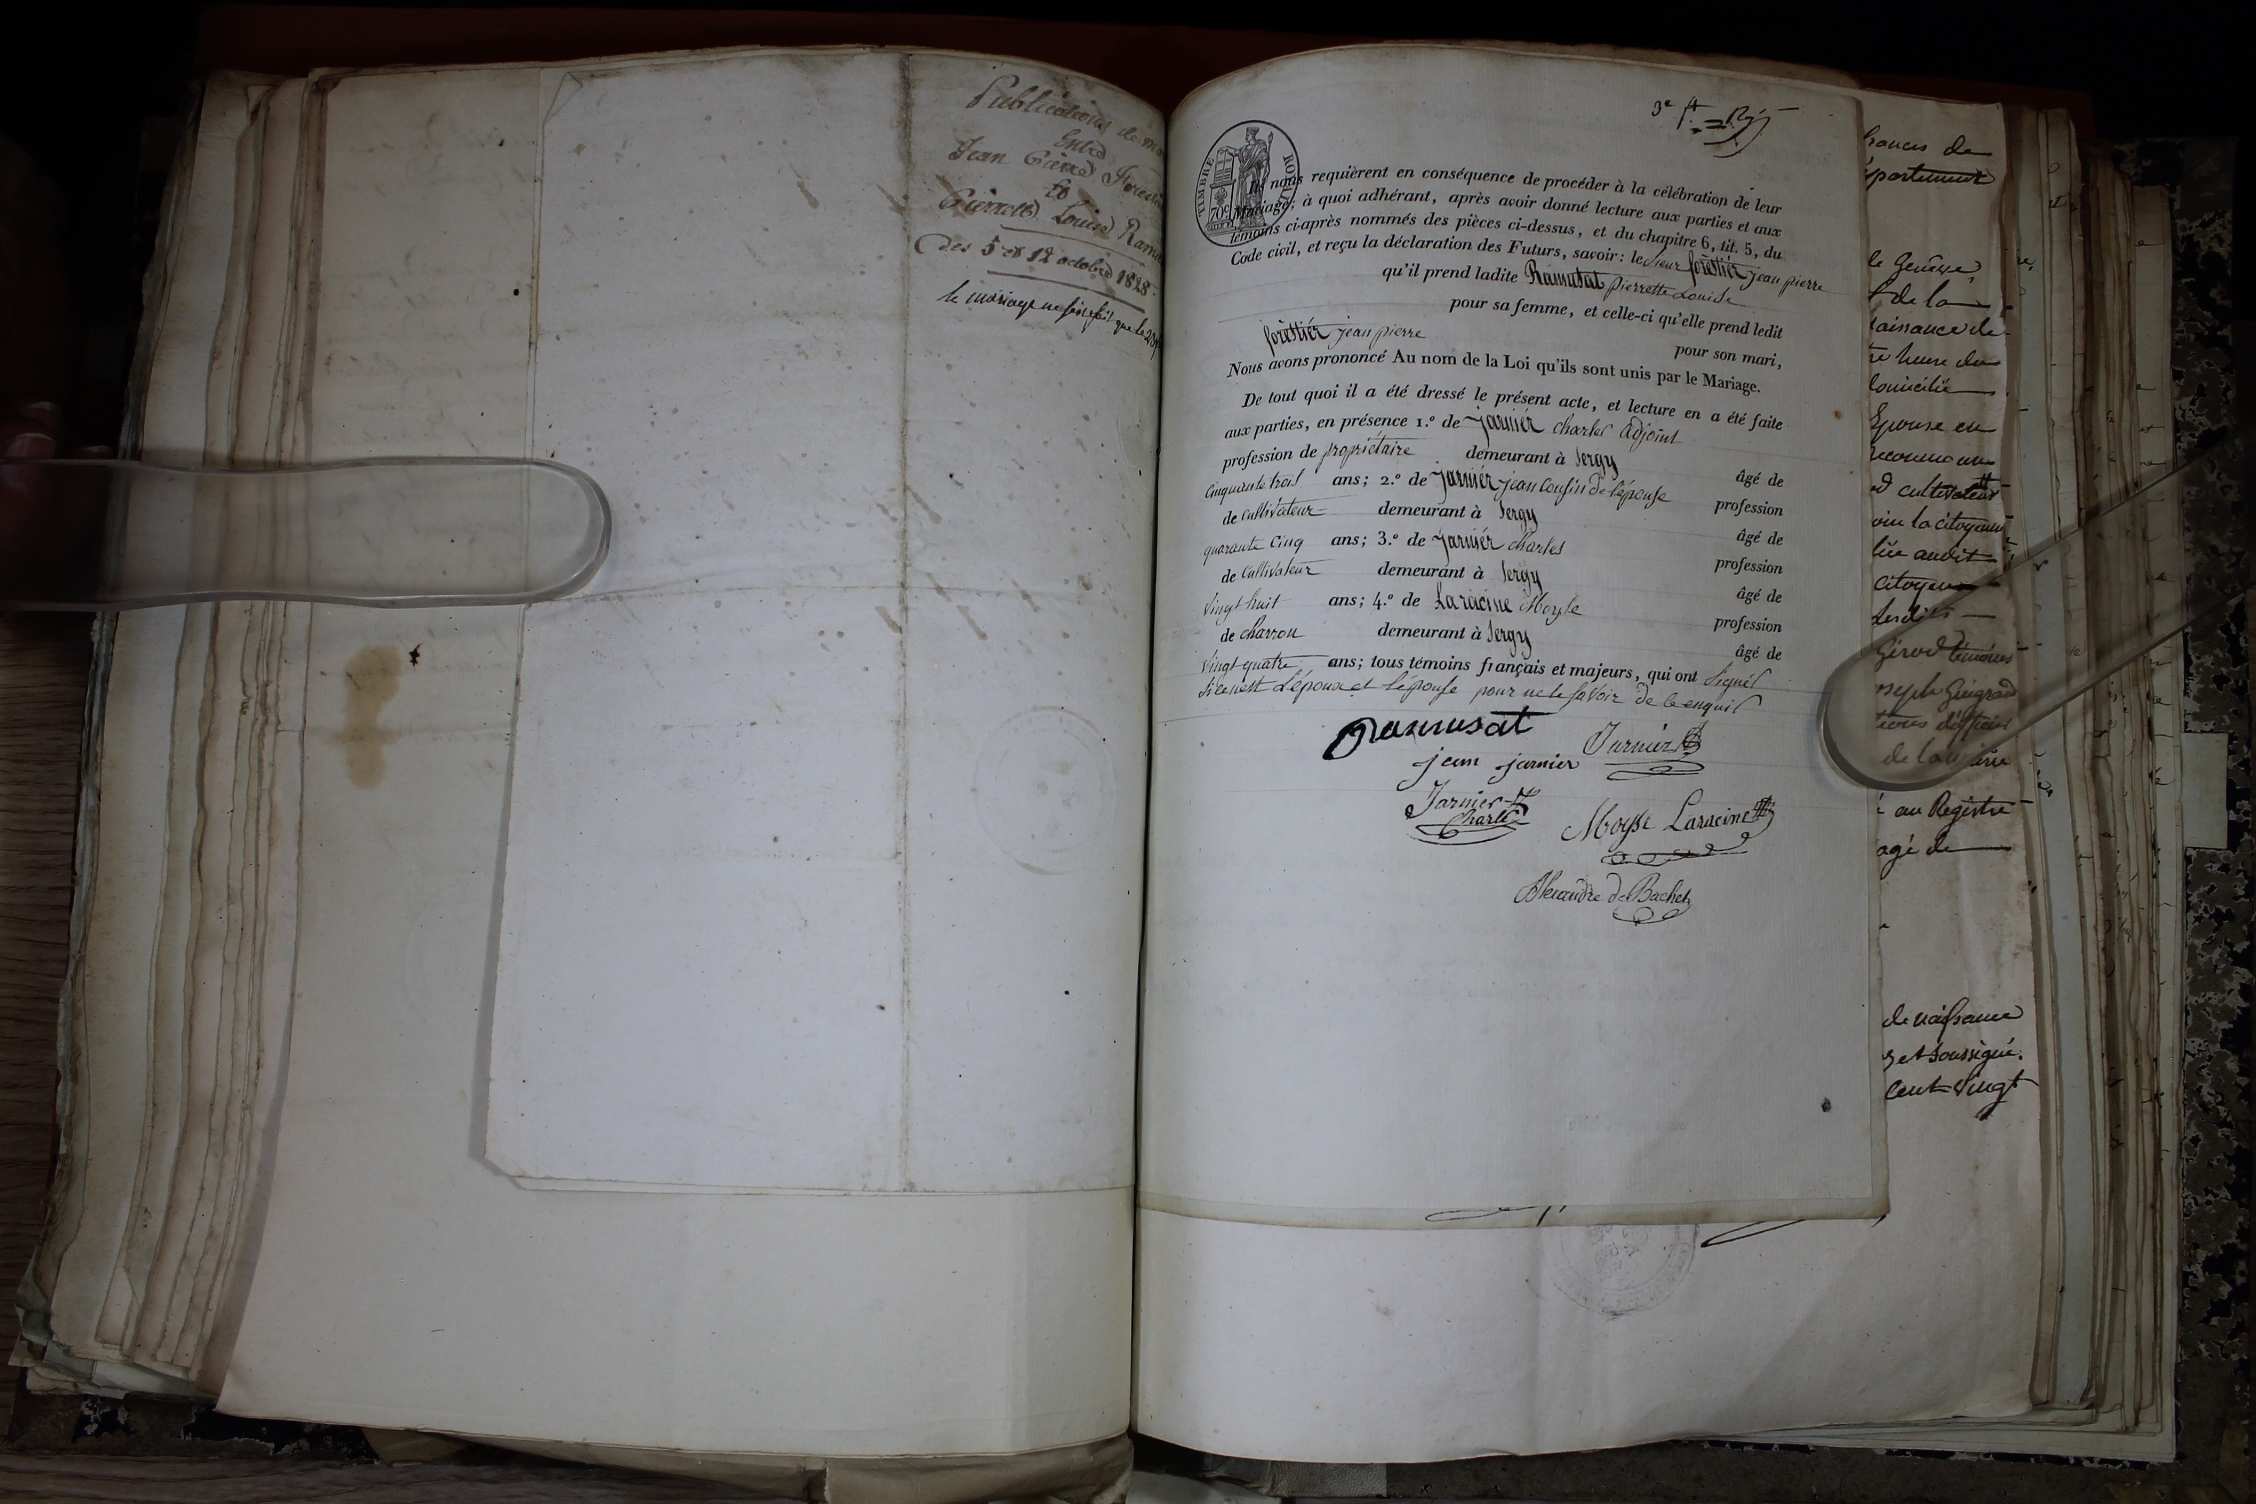 Publications de
Entre
Jean Pierre
et
Pierrette Louise
des 5 et 12 octobre 1828
le mariage ne s'est fait que le
TIMBRE ROYAL
70c
Ils nous requièrent en conséquence de procéder à la célébration de leur
Mariage; à quoi adhérant, après avoir donné lecture aux parties et aux
témoins ci-après nommés des pièces ci-dessus, et du chapitre 6, tit. 5, du
Code civil, et reçu la déclaration des Futurs, savoir: le sieur forèstiér jean pierre
qu'il prend ladite Ramusat pierrette Louise
pour sa femme, et celle-ci qu'elle prend ledit
forèstiér jean pierre
pour son mari,
Nous avons prononcé Au nom de la Loi qu'ils sont unis par le Mariage.
De tout quoi il a été dressé le présent acte, et lecture en a été faite
aux parties, en présence 1.º de Jarniér charles adjoint
profession de propriétaire demeurant à Sergy âgé de
Cinquante trois ans; 2.º de Jarniér jean Cousin de l'épouse profession
de Cultivateur demeurant à Sergy âgé de
quarante Cinq ans; 3.º de Jarniér charles profession
de Cultivateur demeurant à Sergy âgé de
vingt huit ans; 4.º de Laracine Moyse profession
de charron demeurant à Sergy âgé de
vingt quatre ans; tous témoins français et majeurs, qui ont signés
si ce n'est L'époux et L'épouse pour ne le savoir de ce enquis
Ramusat
Jarnier
jean jarnier
Jarnier
Charle
Moyse Laracine
Alexandre de Bachet
de
le Genêsse
de la
naissance de
heure du
domicilié
Epouse en
cultivateur
la citoyenne
audit
citoyen
lesdits
Girod témoins
au Registre
agé de
de naissance
et soussigné.
cent vingt